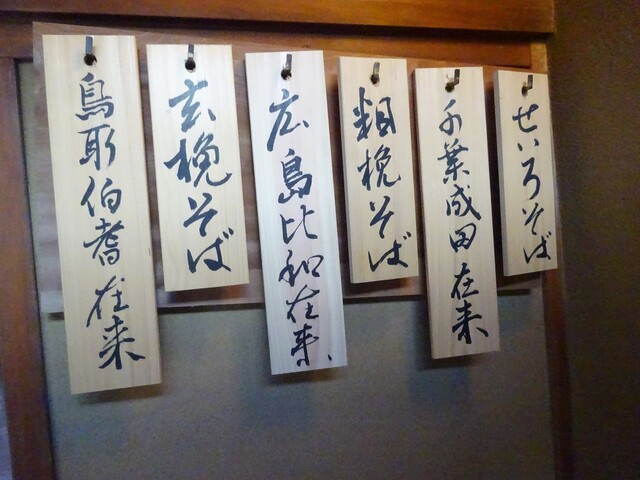 せいろそば
千葉成田在来
粗挽そば
広島比和在来
玄挽そば
鳥取伯耆在来